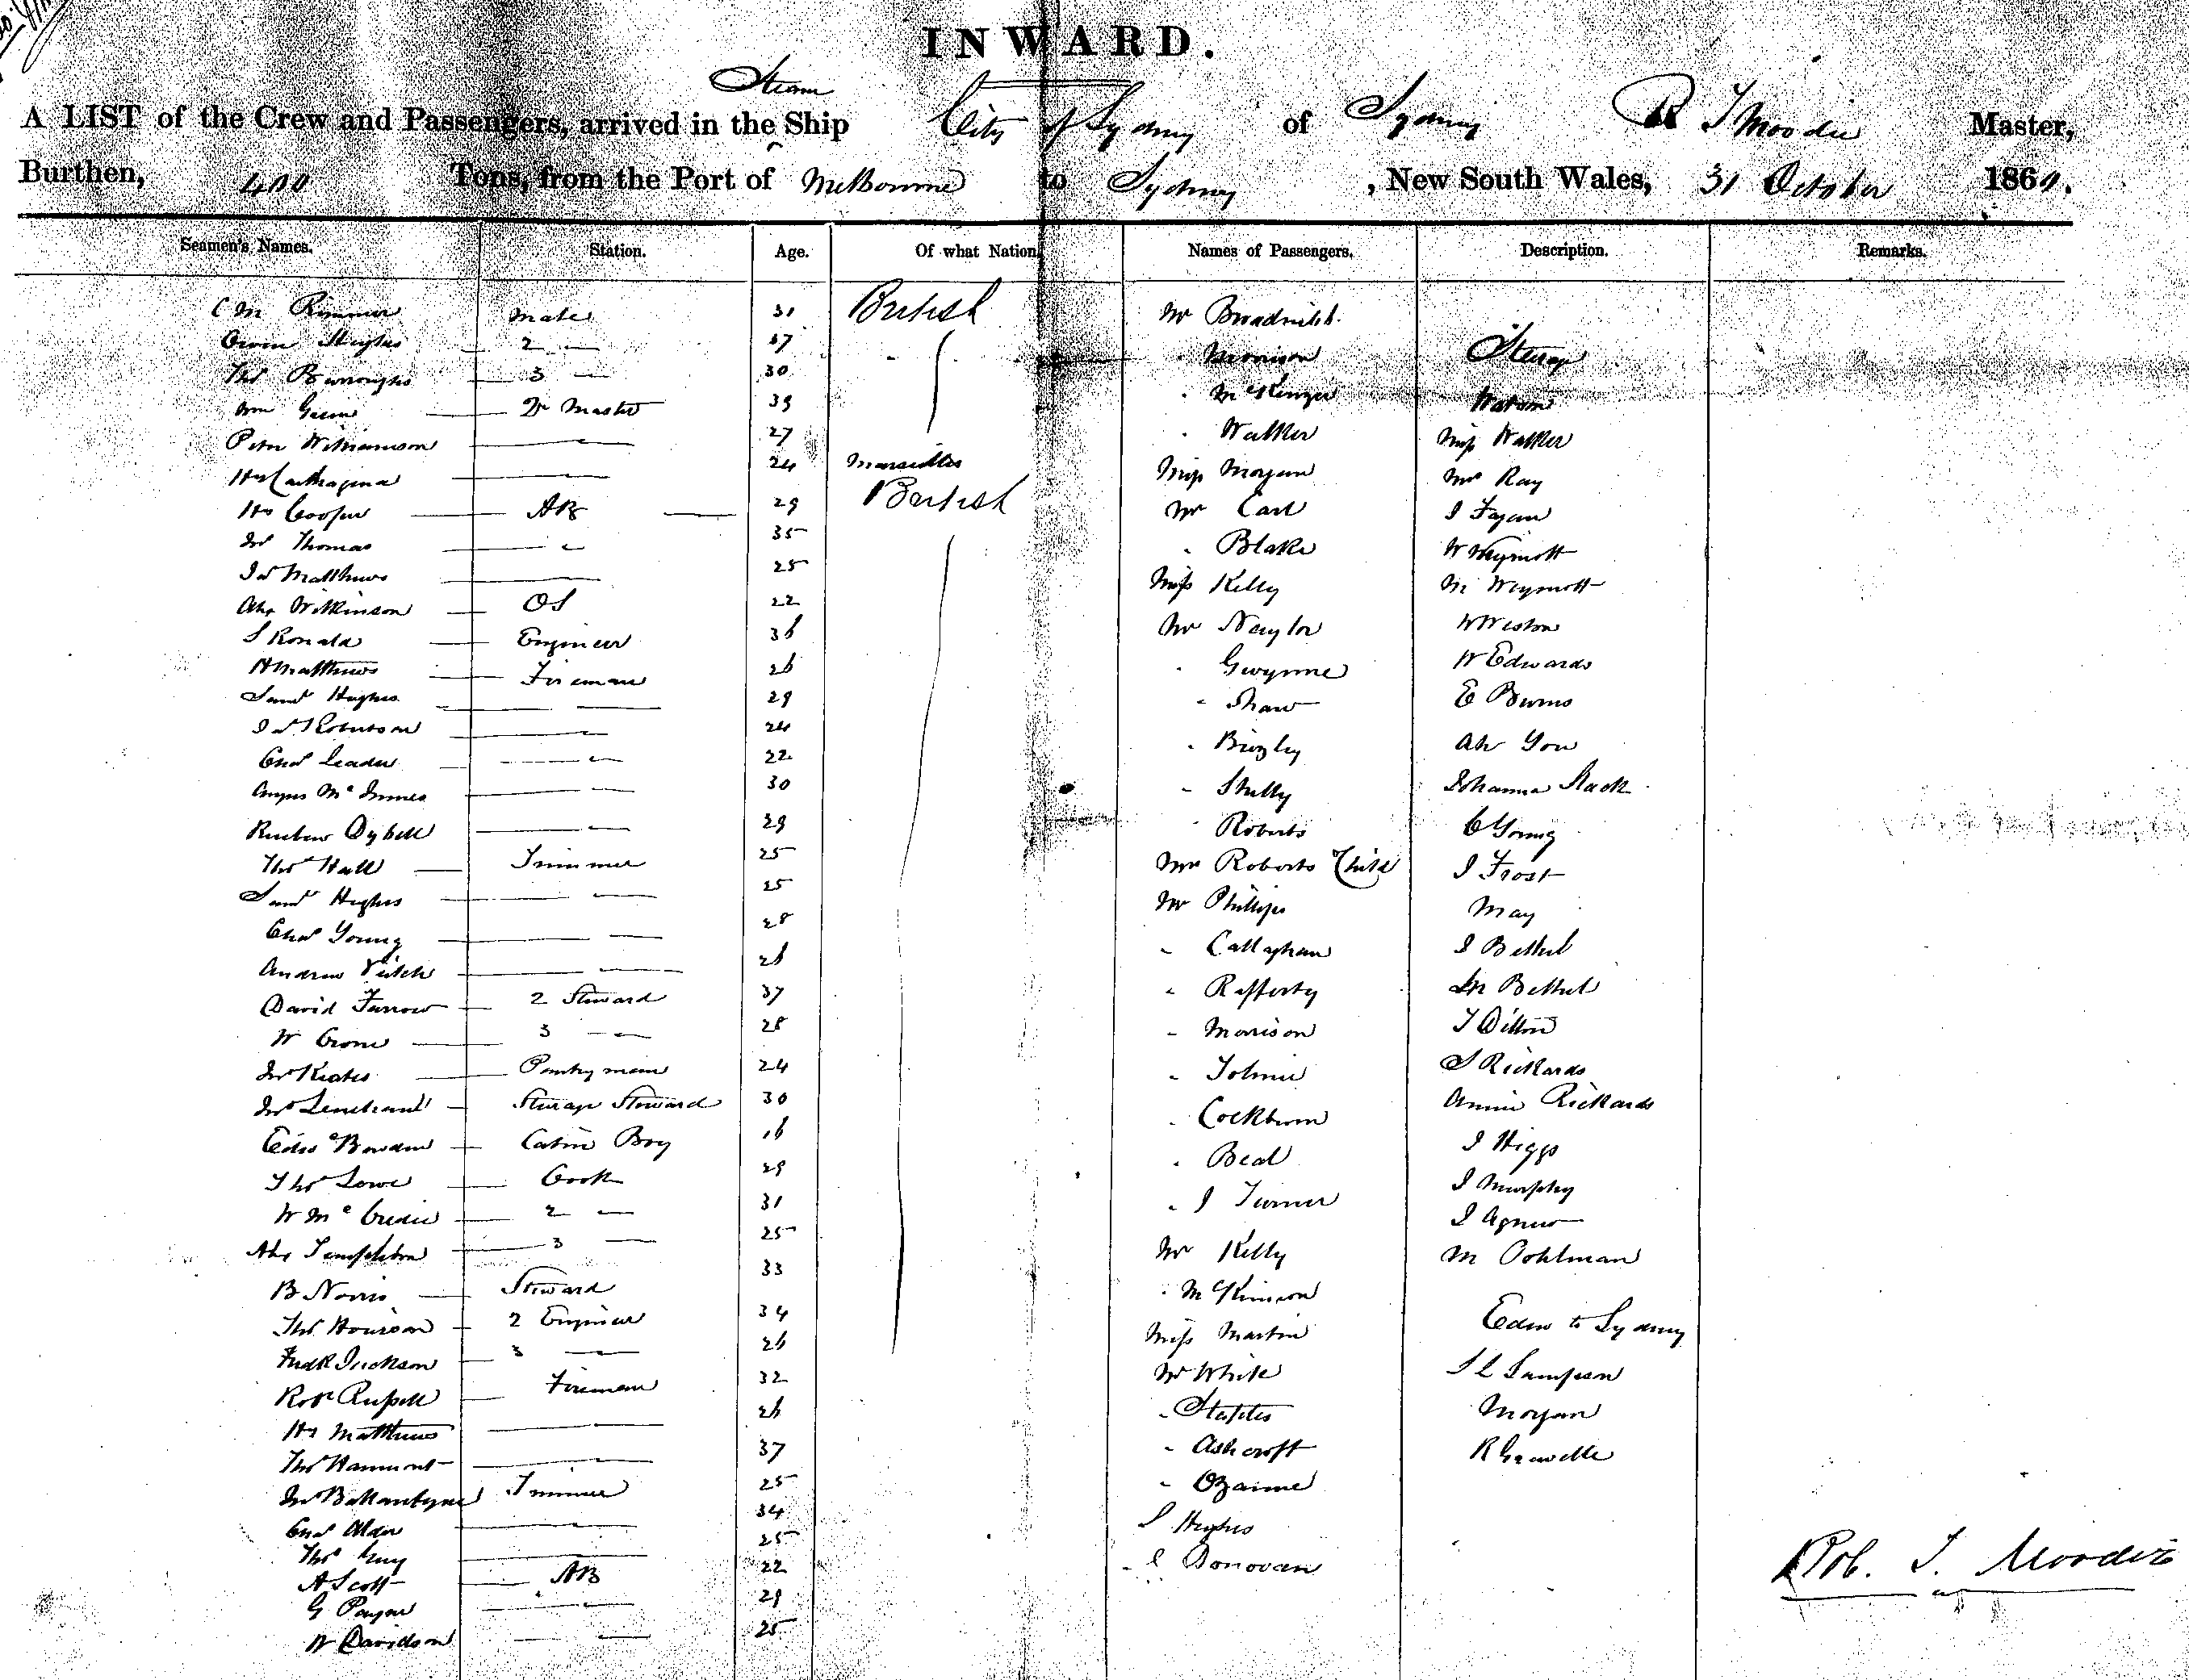 INWARD.
Steam
A LIST of the Crew and Passengers, arrived in the Ship City of Sydney of Sydney R T Moodie Master,
Burthen, 400 Tons, from the Port of Melbourne to Sydney, New South Wales, 31 October 1860.
Seamen's Names. Station. Age. Of what Nation Names of Passengers. Description. Remarks.
C M Rimmer Mate 31 British Mr
Owen Hughes 2 — 37 " Morrison Steerage
Thos Burroughs 3 — 30 " McKenzie Watson
Wm Qr Master 39 " Walker Miss Walker
Peter Williamson — 27 Miss Morgan Mr Ray
Hy Carthagena — 24 Marseilles Mr Carl J Fagan
Hy Cooper AB 29 British " Blake W Weymott
Jno Thomas " 35 Miss Kelly M Weymott
Jas Matthews — 25 Mr Naylor W Weston
Alex Wilkinson OS 22 " Gwynne W Edwards
S Ronald Engineer 36 " Shaw E Burns
H Matthews Fireman 26 " Ah You
Saml Hughes — 29 " Skelly Johanna Slack
Jas Robertson — 24 " Roberts C Young
Chas Leader — 22 Mrs Roberts Child J Frost
Angus McInnes — 30 Mr Phillips May
Reuben Dybell — 29 " Callaghan J Bethel
Thos Hall Trimmer 25 " Rafferty M Bethel
Saml Hughes — 25 " Morrison T Dillon
Chas Young — 28 " Tolmie S Rickards
Andrew Veitch — 26 " Cockburn Annie Rickards
David Farrow 2 Steward 37 " Beal J Higgs
W Crone 3 — 28 " J Turner J Murphy
Jno Keates Pantryman 24 Mr Kelly J Agnew
Jno Steerage Steward 30 " McKinnon M Pohlman
Bowden Cabin Boy 16 Miss Martin Eden to Sydney
Thos Lowe Cook 29 Mr White S L Sampson
W McCredie 2 — 31 " Staples Morgan
Alex Templeton 3 — 25 " Ashcroft R
B Norris Steward 33 " Ozanne
Thos Howison 2 Engineer 34 S Hughes
Fredk Jackson 3 — 26 Donovan
Robt Russell Fireman 32
Hy Matthews — 26
Thos — 37
Jno Ballantyne Trimmer 25
Chas Alder — 34
Thos Guy — 25
A Scott AB 22
G Payne — 29
W Davidson — 25
Rob. T. Moodie